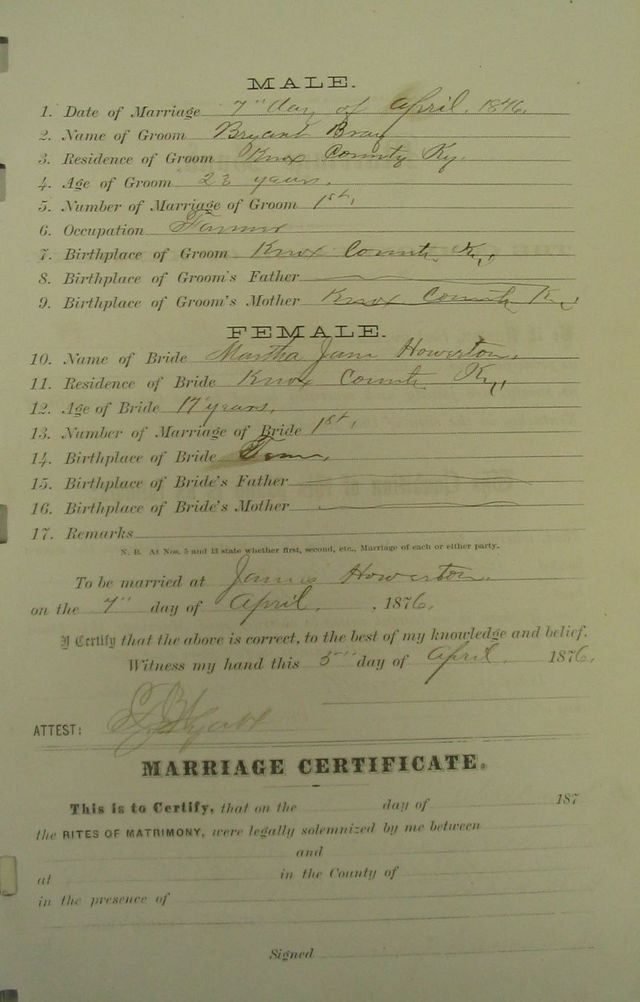 MALE.
1. Date of Marriage 7" day of April. 1876.
2. Name of Groom Bryant Bray
3. Residence of Groom Knox County Ky.
4. Age of Groom 23 years.
5. Number of Marriage of Groom 1st.
6. Occupation Farmer
7. Birthplace of Groom Knox County Ky.
8. Birthplace of Groom's Father
9. Birthplace of Groom's Mother Knox County Ky
FEMALE.
10. Name of Bride Martha Jane Howerton.
11. Residence of Bride Knox County Ky.
12. Age of Bride 17 years.
13. Number of Marriage of Bride 1st.
14. Birthplace of Bride Tenn.
15. Birthplace of Bride's Father
16. Birthplace of Bride's Mother
17. Remarks
N. B. At Nos. 5 and 13 state whether first, second, etc., Marriage of each or either party.
To be married at James Howerton.
on the 7" day of April. , 1876.
I Certify that the above is correct, to the best of my knowledge and belief.
Witness my hand this 5" day of April. 1876.
ATTEST:
MARRIAGE CERTIFICATE.
This is to Certify, that on the day of 187
the RITES OF MATRIMONY, were legally solemnized by me between
and
at in the County of
in the presence of
Signed